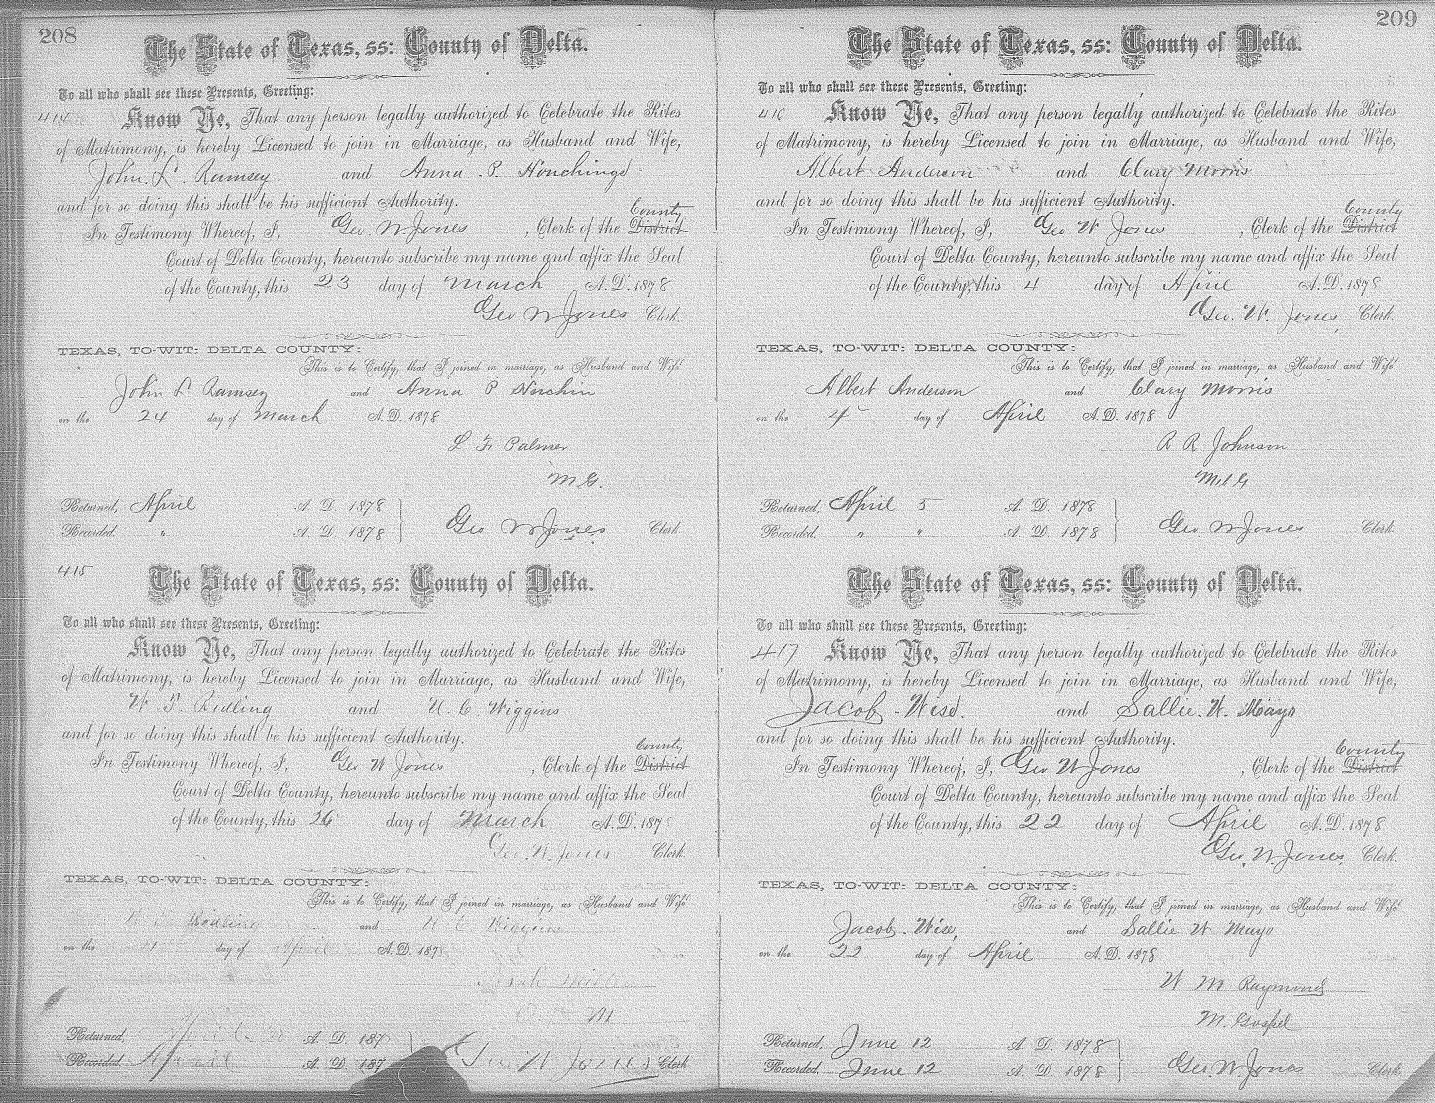 208
The State of Texas, ss: County of Delta.
To all who shall see these Presents, Greeting:
414 Know Ye, That any person legally authorized to Celebrate the Rites
of Matrimony, is hereby Licensed to join in Marriage, as Husband and Wife,
John. L. Ramsey and Anna. P. Houchings
and for so doing this shall be his sufficient Authority.
County
In Testimony Whereof, I, Geo W Jones, Clerk of the District
Court of Delta County, hereunto subscribe my name and affix the Seal
of the County, this 23 day of March A. D. 1878
Geo W Jones Clerk.
TEXAS, TO-WIT: DELTA COUNTY:
This is to Certify, that I joined in marriage, as Husband and Wife
John L Ramsey and Anna P
on the 24 day of March A. D. 1878
L F Palmer
M. G.
Returned, April A. D. 1878
Recorded, " A. D. 1878 Geo W Jones Clerk
415
The State of Texas, ss: County of Delta.
To all who shall see these Presents, Greeting:
Know Ye, That any person legally authorized to Celebrate the Rites
of Matrimony, is hereby Licensed to join in Marriage, as Husband and Wife,
W Ridling and Wiggins
and for so doing this shall be his sufficient Authority.
County
In Testimony Whereof, I, Geo W Jones, Clerk of the District
Court of Delta County, hereunto subscribe my name and affix the Seal
of the County, this 26 day of March A. D. 187
Geo. W. Jones Clerk.
TEXAS, TO-WIT: DELTA COUNTY:
This is to Certify, that I joined in marriage, as Husband and Wife
Ridling and Wiggins
on the day of April A. D. 187
Returned, A. D. 187
Recorded, April A. D. 187 Geo W Jones Clerk
209
The State of Texas, ss: County of Delta.
To all who shall see these Presents, Greeting:
416 Know Ye, That any person legally authorized to Celebrate the Rites
of Matrimony, is hereby Licensed to join in Marriage, as Husband and Wife,
Albert Anderson and Clary Morris
and for so doing this shall be his sufficient Authority.
County
In Testimony Whereof, I, Geo W Jones, Clerk of the District
Court of Delta County, hereunto subscribe my name and affix the Seal
of the County, this 4 day of April A. D. 1878
Geo. W. Jones, Clerk.
TEXAS, TO-WIT: DELTA COUNTY:
This is to Certify, that I joined in marriage, as Husband and Wife
Albert Anderson and Clary Morris
on the 4 day of April A. D. 1878
A R Johnson
Returned, April 5 A. D. 1878
Recorded, " " A. D. 1878 Geo W Jones Clerk.
The State of Texas, ss: County of Delta.
To all who shall see these Presents, Greeting:
417 Know Ye, That any person legally authorized to Celebrate the Rites
of Matrimony, is hereby Licensed to join in Marriage, as Husband and Wife,
Jacob Wise. and Sallie. W. Mayo
and for so doing this shall be his sufficient Authority.
County
In Testimony Whereof, I, Geo W Jones, Clerk of the District
Court of Delta County, hereunto subscribe my name and affix the Seal
of the County, this 22 day of April A. D. 1878
Geo. W. Jones, Clerk.
TEXAS, TO-WIT: DELTA COUNTY:
This is to Certify, that I joined in marriage, as Husband and Wife
Jacob. Wise, and Sallie W Mayo
on the 22 day of April A. D. 1878
W M Raymond
M. Gospel
Returned, June 12 A. D. 1878
Recorded, June 12 A. D. 1878 Geo. W Jones Clerk.